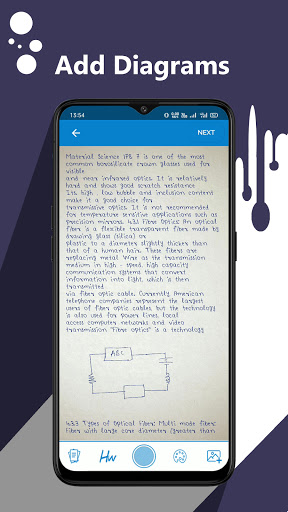 Add Diagrams
13:54
NEXT
Material Science 1PB 7 is one of the most
common borosilicate crown glasses used for
visible
and near infrared optics. It is relatively
hard and shows good scratch resistance
Its high , low bubble and inclusion content
make it a good choice for
transmissive optics. It is not recommended
for temperature sensitive applications such as
precision mirrors. 4.3.1 Fibre Optics: An optical
fiber is a flexible transparent fiber made by
drawing glass (silica) or
plastic to a diameter slightly thicker than
that of a human hair. These fibers are
replacing metal Wire as the transmission
medium in high - speed, high capacity
communication systems that convert
information into light, which is then
transmitted
via fiber optic cable. Currently American
telephone companies represent the largest
users of fiber optic cables, but the technology
is also used for power lines, local
access computer networks and video
transmission "Fibre optics" is a technology
ABC
4.3.3 Types of Optical Fiber: Multi mode fiber:
fiber with large core diameter (greater than
Hw